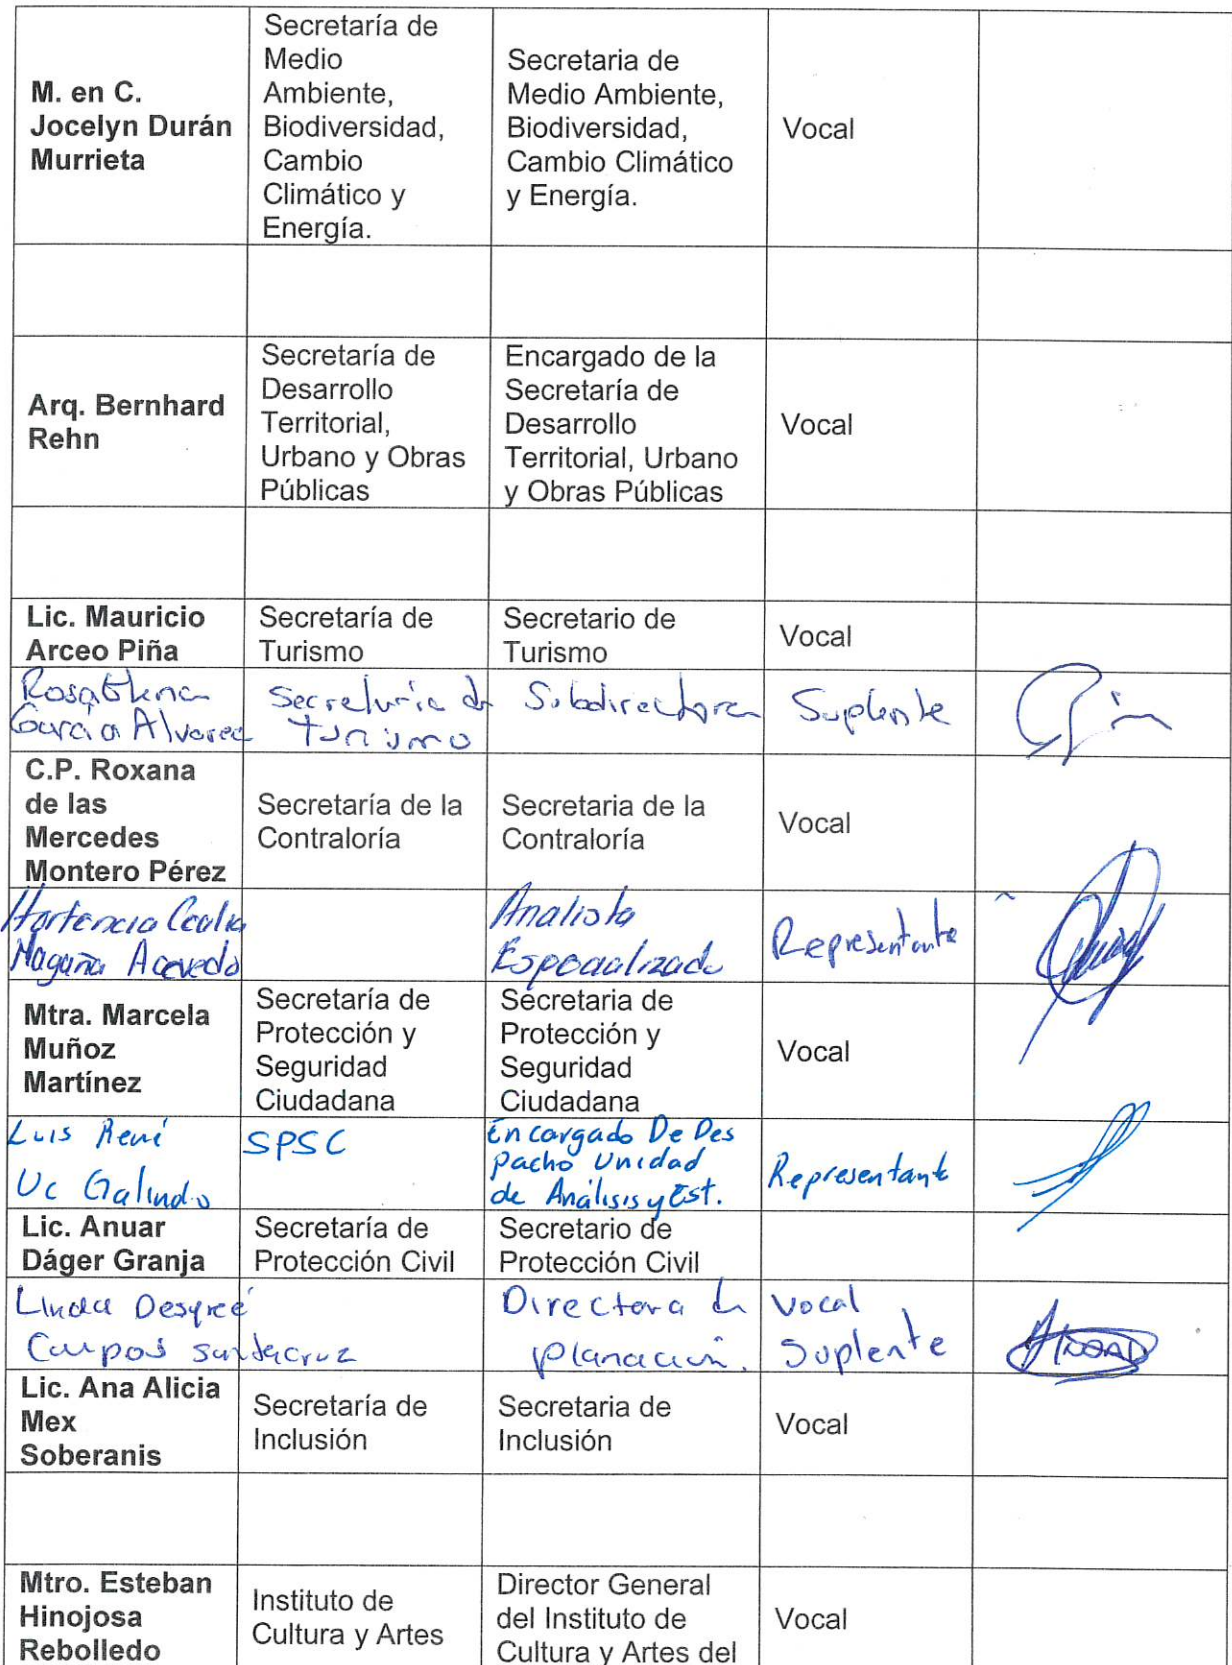 M. en C.
Jocelyn Durán
Murrieta
Secretaría de
Medio
Ambiente,
Biodiversidad,
Cambio
Climático y
Energía.
Secretaria de
Medio Ambiente,
Biodiversidad,
Cambio Climático
y Energía.
Vocal
Arq. Bernhard
Rehn
Secretaría de
Desarrollo
Territorial,
Urbano y Obras
Públicas
Encargado de la
Secretaría de
Desarrollo
Territorial, Urbano
y Obras Públicas
Vocal
Lic. Mauricio
Arceo Piña
Secretaría de
Turismo
Secretario de
Turismo
Vocal
Rosa Elena
García Alvarez
Secretaría de
Turismo
Subdirectora
Suplente
C.P. Roxana
de las
Mercedes
Montero Pérez
Secretaría de la
Contraloría
Secretaria de la
Contraloría
Vocal
Hortencia Cecilia
Magaña Acevedo
Analista
Especializado
Representante
Mtra. Marcela
Muñoz
Martínez
Secretaría de
Protección y
Seguridad
Ciudadana
Secretaria de
Protección y
Seguridad
Ciudadana
Vocal
Luis René
Uc Galindo
SPSC
Encargado De Des
pacho Unidad
de Análisis y Est.
Representante
Lic. Anuar
Dáger Granja
Secretaría de
Protección Civil
Secretario de
Protección Civil
Linda Desyreé
Campos Santacruz
Directora de
planación.
Vocal
Suplente
Lic. Ana Alicia
Mex
Soberanis
Secretaría de
Inclusión
Secretaria de
Inclusión
Vocal
Mtro. Esteban
Hinojosa
Rebolledo
Instituto de
Cultura y Artes
Director General
del Instituto de
Cultura y Artes del
Vocal